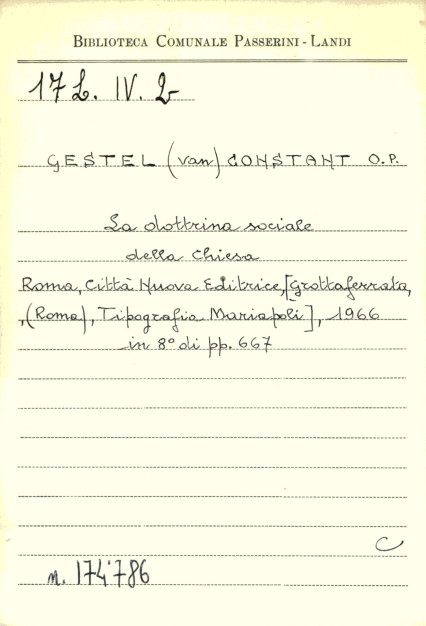 BIBLIOTECA COMUNALE PASSERINI - LANDI
17 L. IV. 2
GESTEL (van) CONSTANT O.P.
La dottrina sociale
della Chiesa
Roma, Città Nuova Editrice, [Grottaferrata,
(Roma), Tipografia Mariapoli], 1966
in 8° di pp. 667
C
n. 174'786